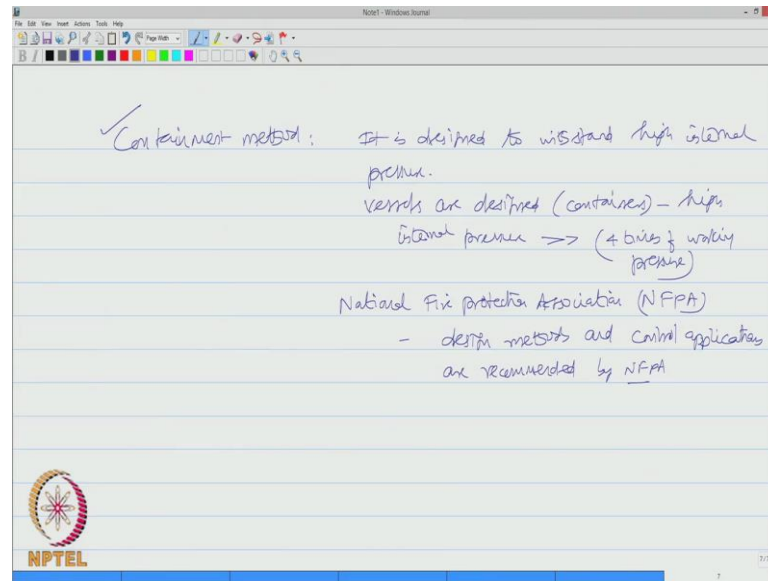 Note1 - Windows Journal
File Edit View Insert Actions Tools Help
Page Width
B I
Containment method : It is designed to withstand high internal
pressure.
vessels are designed (containers) – high
internal pressure >> (4 times of working
pressure)
National Fire protection Association (NFPA)
- design methods and control applications
are recommended by NFPA
NPTEL
7